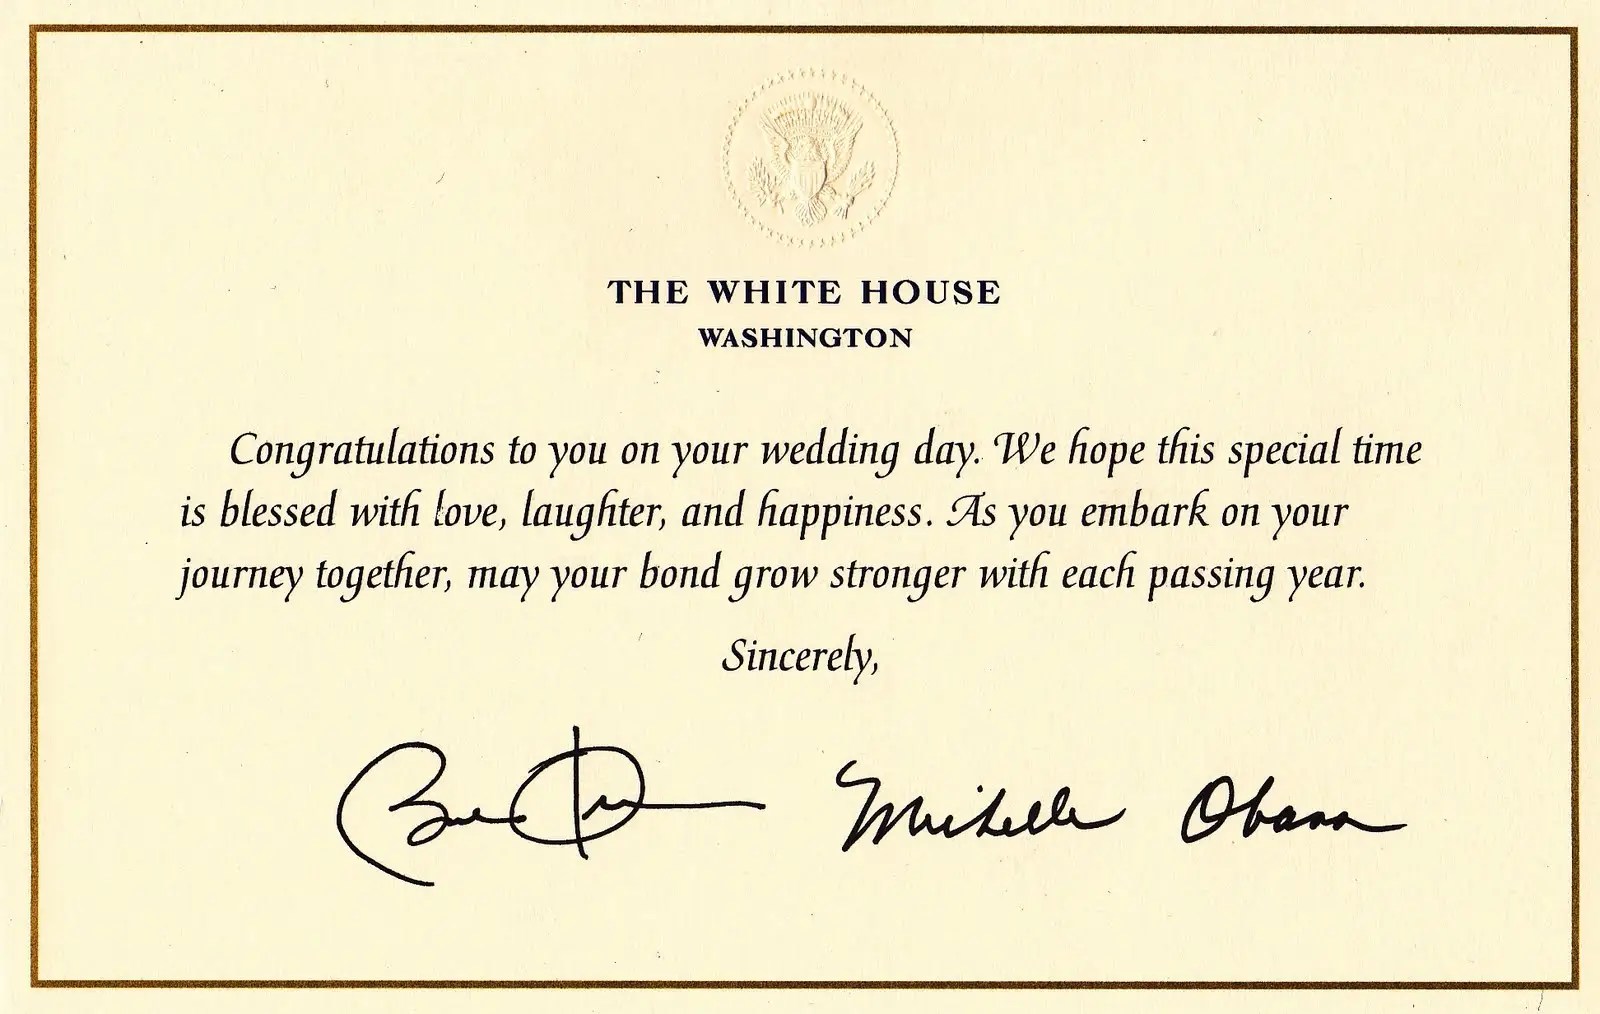 THE WHITE HOUSE
WASHINGTON
Congratulations to you on your wedding day. We hope this special time
is blessed with love, laughter, and happiness. As you embark on your
journey together, may your bond grow stronger with each passing year.
Sincerely,
Michelle Obama